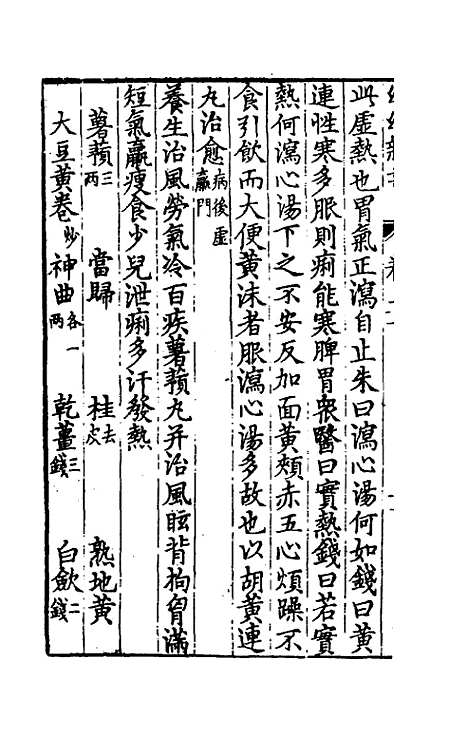 此虛熱也胃氣正瀉自止朱曰瀉心湯何如錢曰黃
連性寒多服則痢能寒脾胃衆醫曰實熱錢曰若實
熱何瀉心湯下之不安反加面黃頰赤五心煩躁不
食引飲而大便黃沫者服瀉心湯多故也以胡黃連
丸治愈病後虛羸門
養生治風勞氣冷百疾薯蕷丸并治風眩背拘胷滿
短氣羸瘦食少兒泄痢多汗發熱
薯蕷三兩 當歸 桂去皮 熟地黃
大豆黃卷炒 神曲各一兩 乾薑三錢 白歛二錢